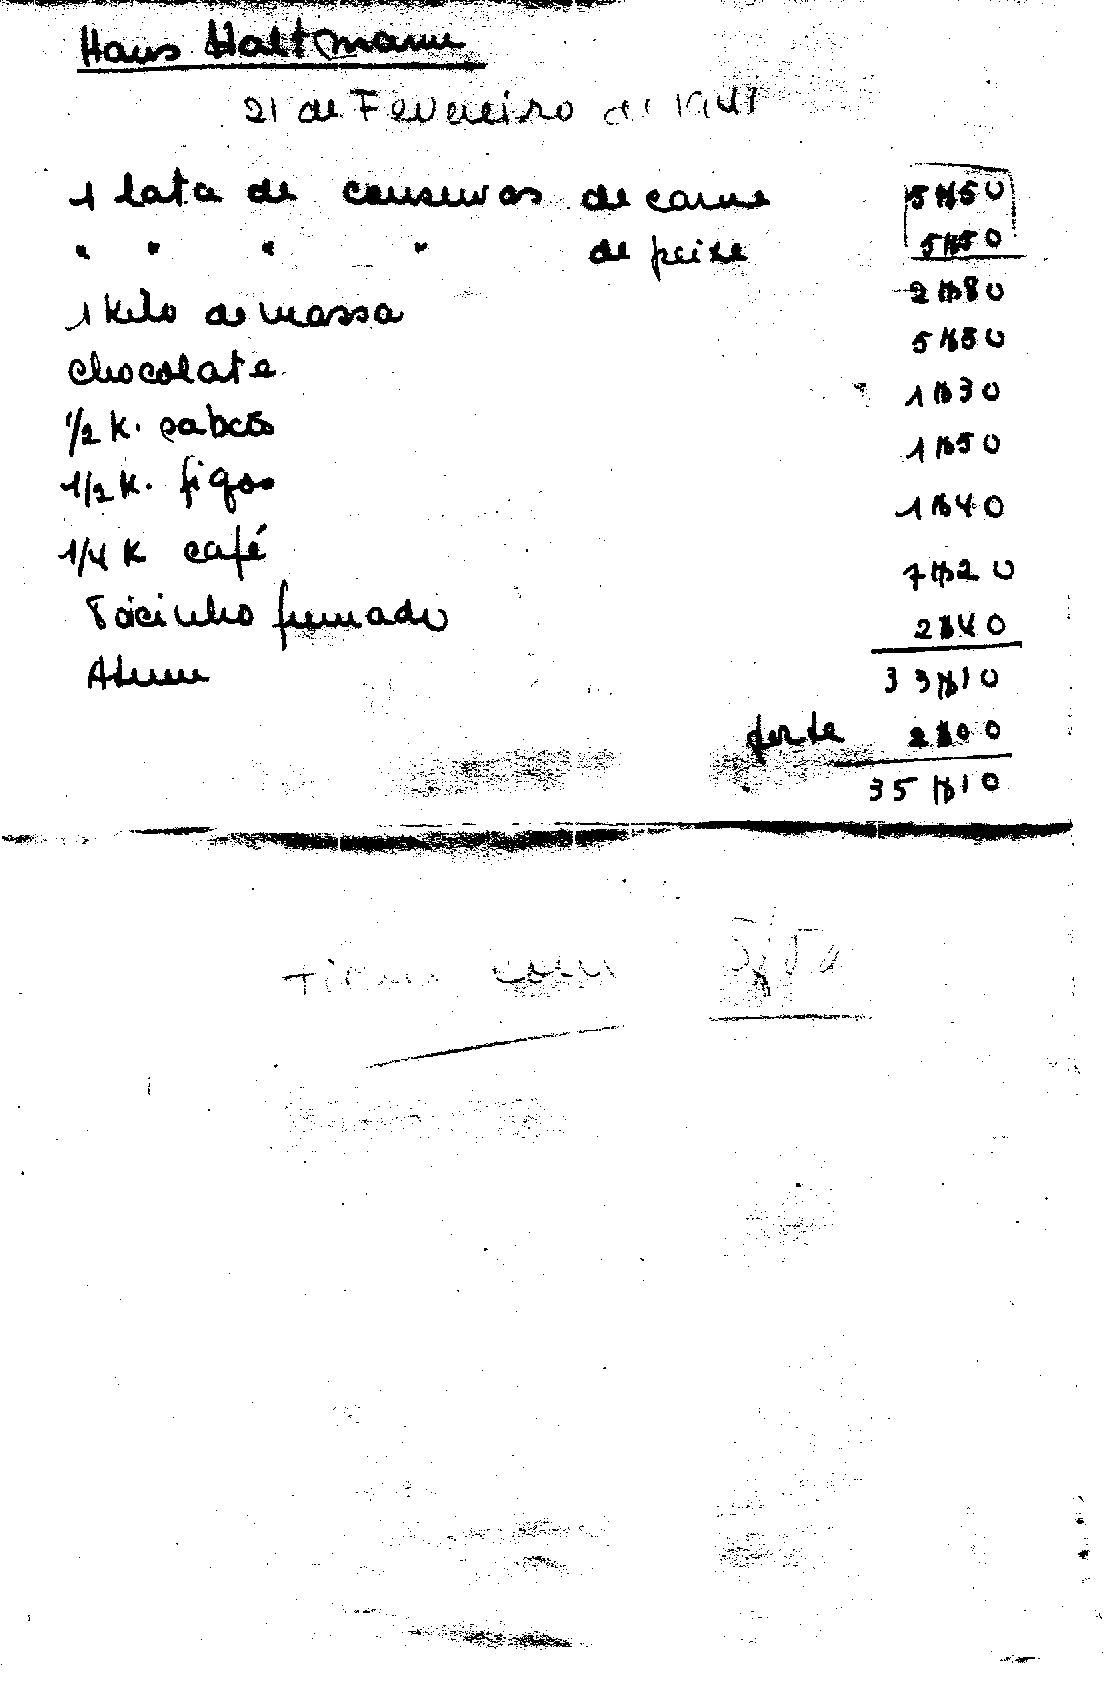 Hans Haltmann
21 de Fevereiro de 1941
1 lata de conservas de carne 5$50
" " " " de peixe 5$50
1 kilo de massa 2$80
chocolate 5$50
1/2 K. sabão 1$30
1/2 K. figos 1$50
1/4 K café 1$40
Toicinho fumado 7$20
Atum 2$40
33$10
porte 2$00
35$10